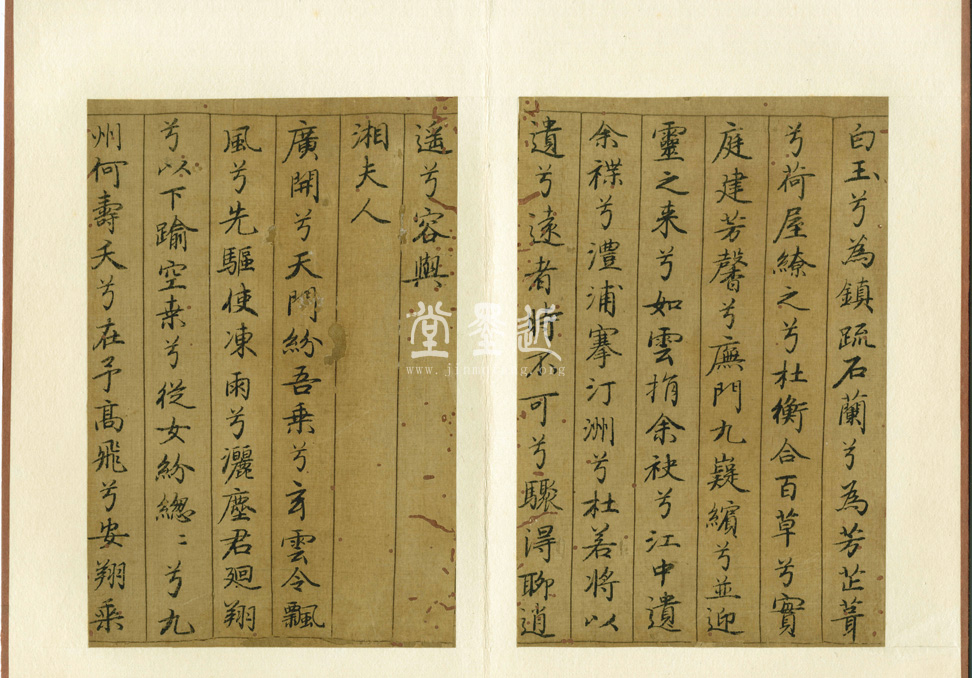 白玉兮為鎮疏石蘭兮為芳芷葺
兮荷屋繚之兮杜衡合百草兮實
庭建芳馨兮廡門九嶷繽兮並迎
靈之来兮如雲捐余袂兮江中遺
余褋兮澧浦搴汀洲兮杜若将以
遺兮遠者時不可兮驟得聊逍
遥兮容與
湘夫人
廣開兮天門紛吾乗兮玄雲令飄
風兮先驅使凍雨兮灑塵君廻翔
兮以下踰空桒兮從女紛緫〻兮九
州何壽夭兮在予高飛兮安翔乗
近墨堂
www.jinmotang.org